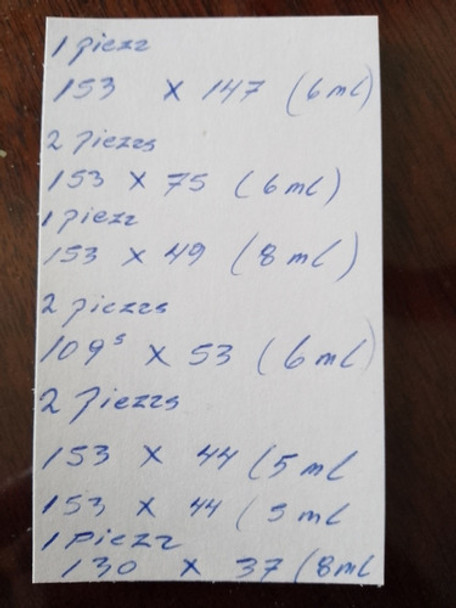 1 pieza
153 x 147 (6 ml)
2 piezas
153 x 75 (6 ml)
1 pieza
153 x 49 (8 ml)
2 piezas
109⁵ x 53 (6 ml)
2 piezas
153 x 44 (5 ml
153 x 44 (5 ml
1 pieza
130 x 37 (8 ml